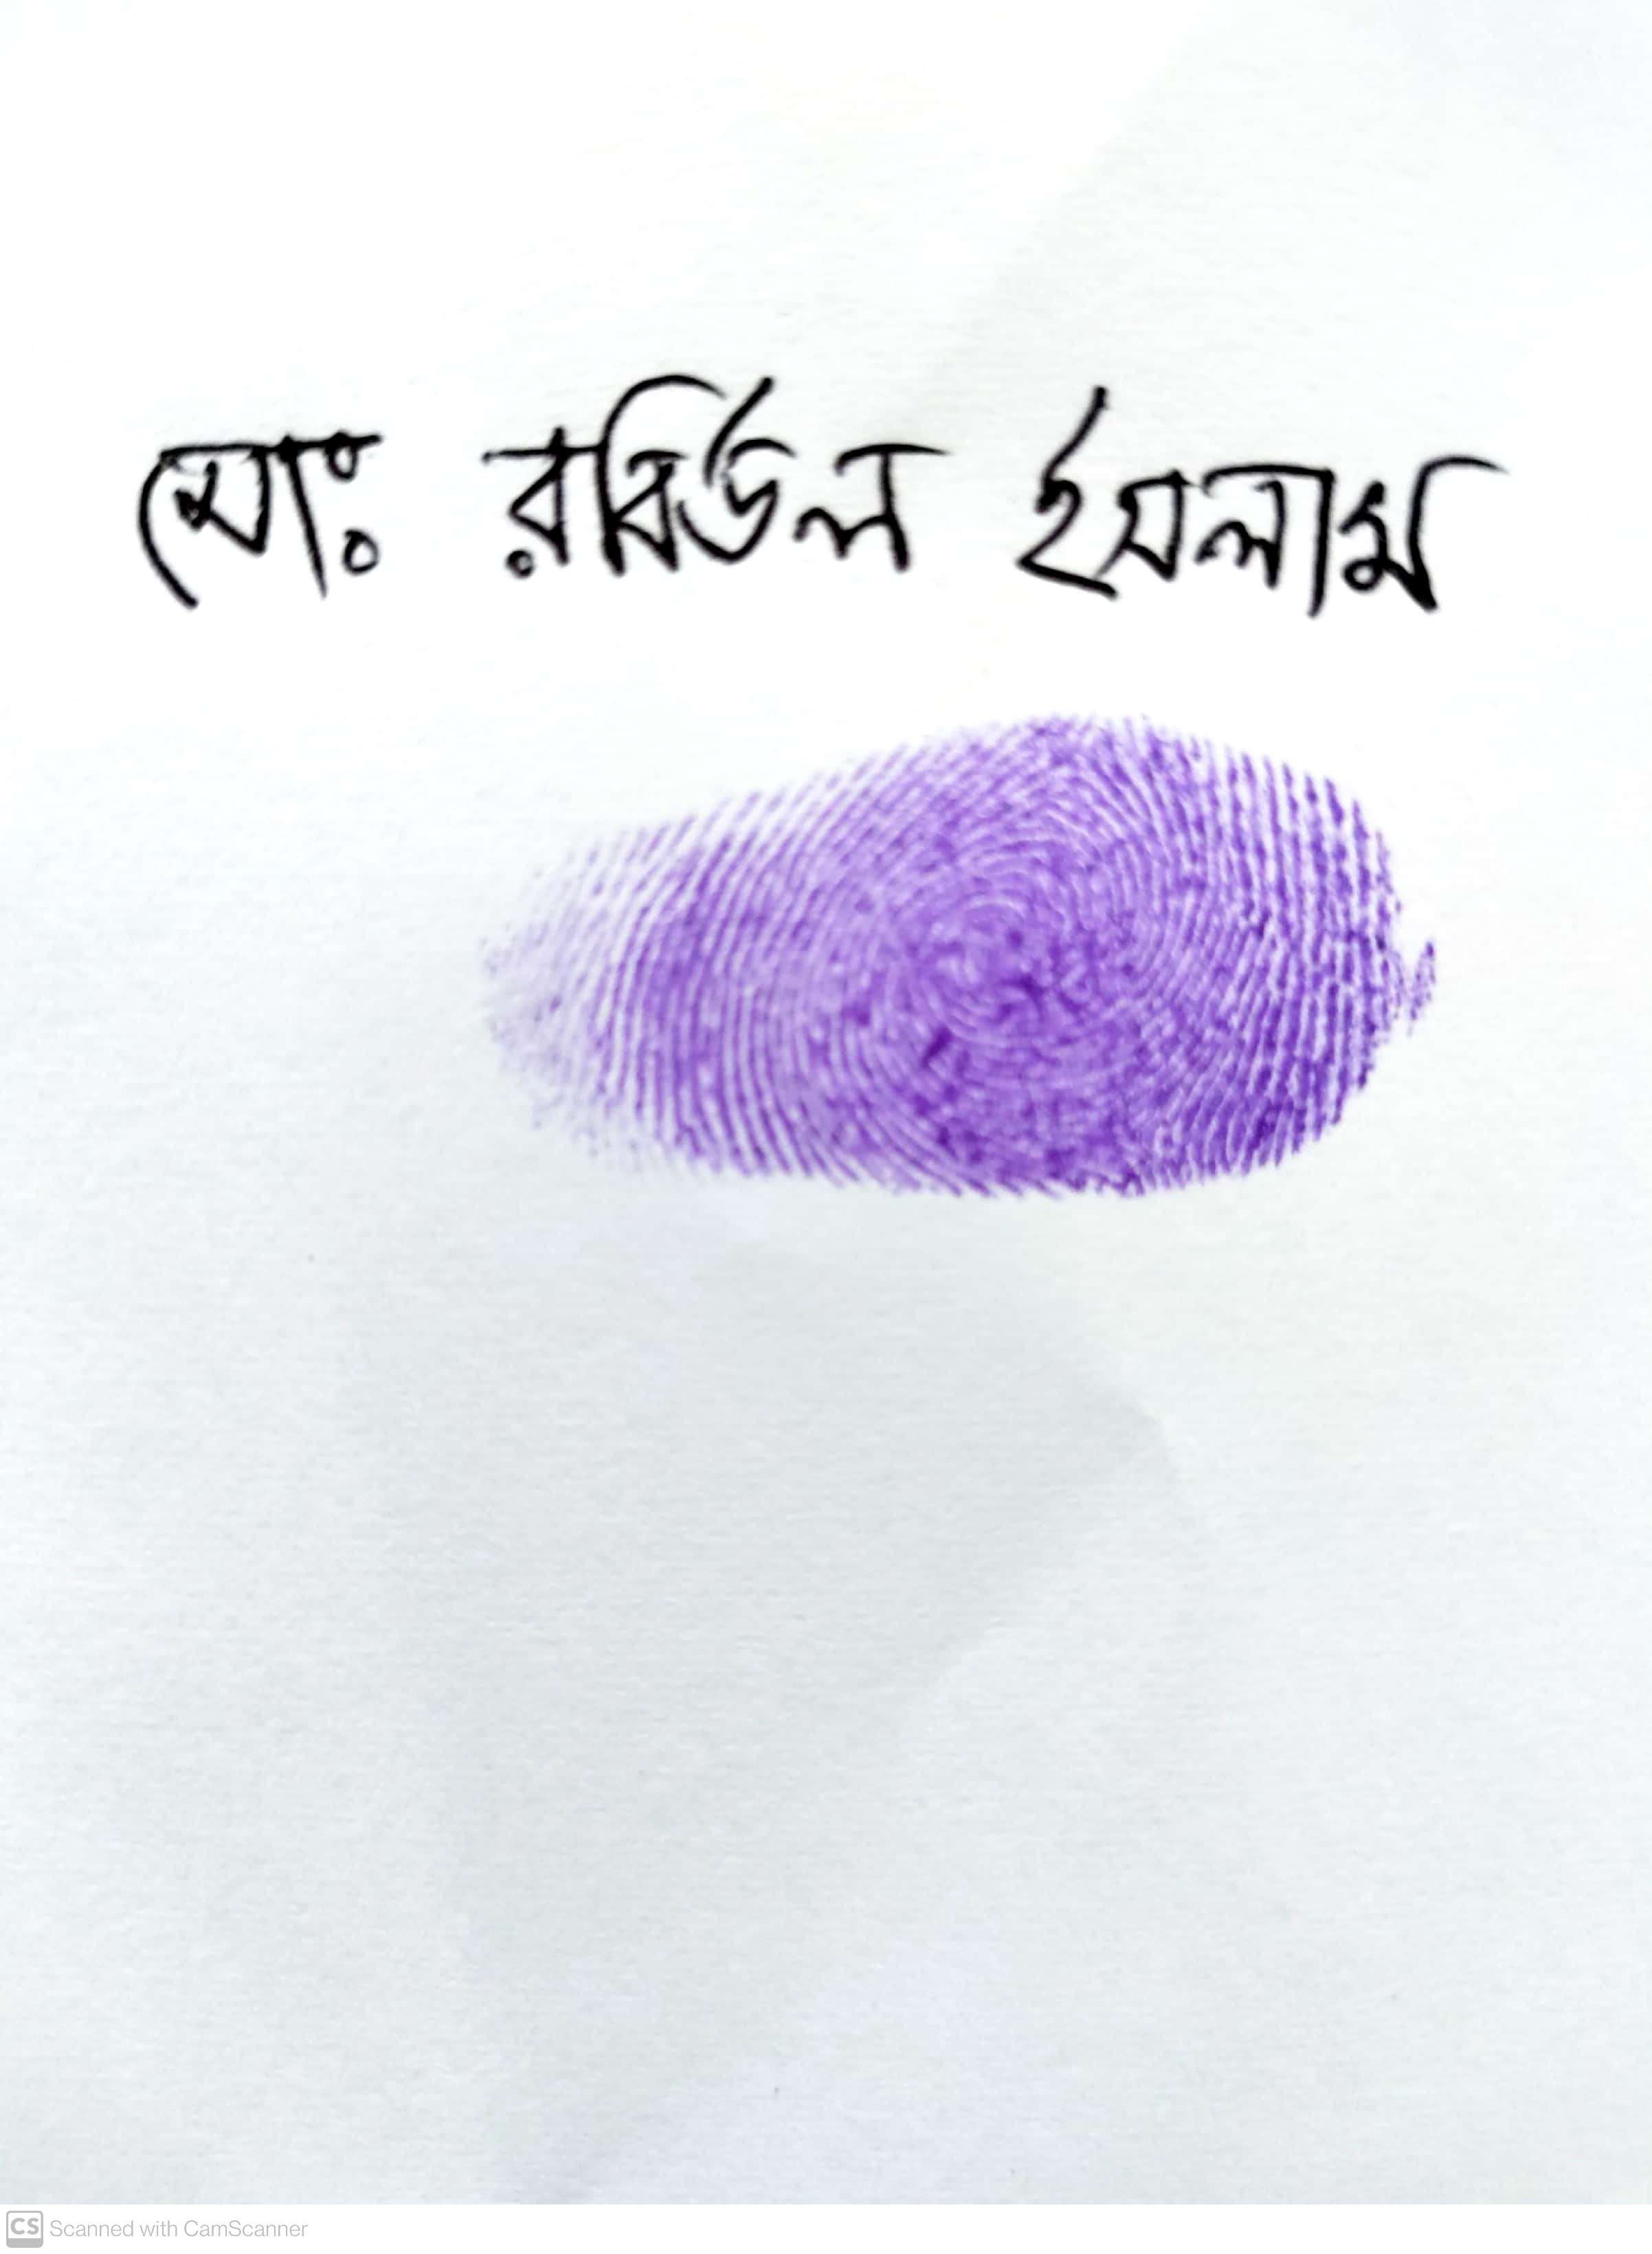 মোঃ রবিউল ইসলাম
CS Scanned with CamScanner